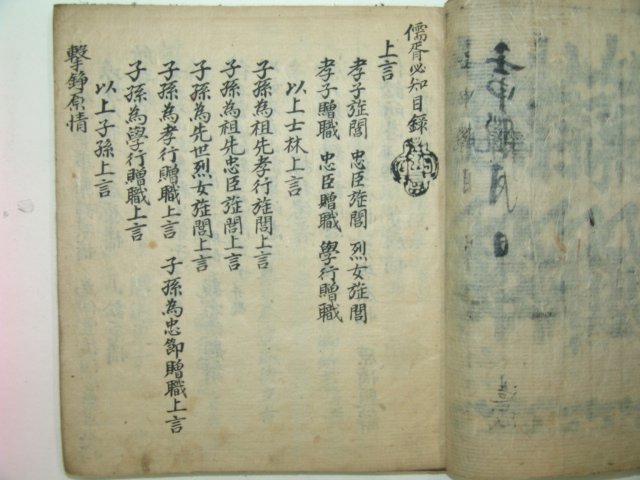 儒胥必知目錄
上言
孝子旌閭 忠臣旌閭 烈女旌閭
孝子贈職 忠臣贈職 學行贈職
以上士林上言
子孫為祖先孝行旌閭上言
子孫為祖先忠臣旌閭上言
子孫為先世烈女旌閭上言
子孫為孝行贈職上言 子孫為忠節贈職上言
子孫為學行贈職上言
以上子孫上言
擊錚原情